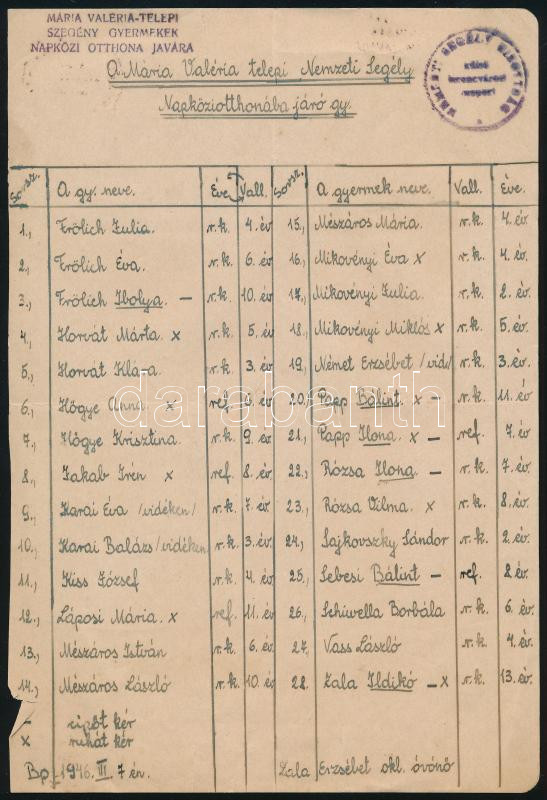 MÁRIA VALÉRIA-TELEPI
SZEGÉNY GYERMEKEK
NAPKÖZI OTTHONA JAVÁRA
NEMZETI SEGÉLY
külső
ferencvárosi
csoport
A Mária Valéria telepi Nemzeti Segély
Napköziotthonába járó gy.
Sorsz. A gy. neve. Éve Vall. Sorsz. A gyermek neve. Vall. Éve.
1., Frölich Julia. r.k. 4. év 15., Mészáros Mária. r.k. 4. év
2., Frölich Éva. r.k. 6. év. 16., Mikovényi Éva x r.k. 4. év.
3., Frölich Ibolya. – r.k. 10. év 17., Mikovényi Julia. r.k. 2. év.
4., Horvát Márta. x r.k. 5. év 18., Mikovényi Miklós x r.k. 5. év.
5., Horvát Klára. r.k. 3. év. 19., Német Erzsébet /vid/ r.k. 3. év.
6., Högye Anna. x ref. év. 20., Papp Bálint. x – r.k. 11. év
7., Högye Krisztina. r.k. 9. év 21., Papp Ilona. x – ref. 7. év
8., Jakab Irén x ref. 8. év. 22., Rózsa Ilona. – r.k. 7. év
9., Karai Éva /vidéken/ r.k. 7. év. 23., Rózsa Vilma. x r.k. 8. év.
10., Karai Balázs /vidéken r.k. 3. év. 24., Sajkovszky Sándor r.k. 2. év.
11., Kiss József r.k. 4. év 25., Sebesi Bálint – ref. 8 év.
12., Láposi Mária. x ref. 11. év 26., Schiwella Borbála r.k. 6. év.
13., Mészáros István r.k. 6. év. 27., Vass László r.k. 4. év.
14., Mészáros László r.k. 10. év 28. Zala Ildikó – x r.k. 13. év.
– cipőt kér
x ruhát kér
Bp. 1946. III. 7 én. Zala Erzsébet okl. óvónő
darabanth